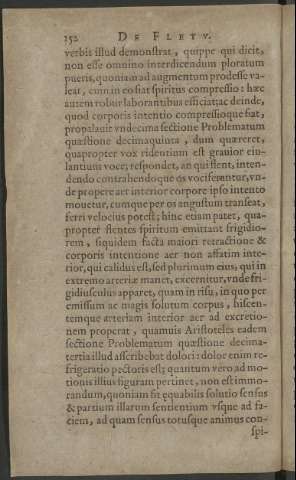 152 DE FLETV.
verbis illud demonstrat, quippe qui dicit,
non esse omnino interdicendum ploratum
pueris, quoniam ad augmentum prodesse va-
leat, cum in eo fiat spiritus compressio: hæc
autem robur laborantibus efficiat; ac deinde,
quod corporis intentio compressioque fiat,
propalauit vndecima sectione Problematum
quæstione decimaquinta, dum quæreret,
quapropter vox ridentium est grauior eiu-
lantium voce; respondet, an qui flent, inten-
dendo contrahendoque os vociferentur, vn-
de propere aer interior corpore ipso intento
mouetur, cumque per os angustum transeat,
ferri velocius potest; hinc etiam patet, qua-
propter flentes spiritum emittant frigidio-
rem, siquidem facta maiori retractione &
corporis intentione aer non affatim inte-
rior, qui calidus est, sed plurimum eius, qui in
extremo arteriæ manet, excernitur, vnde fri-
gidiusculus apparet, quam in risu, in quo per
emissum ac magis solutum corpus, hiscen-
temque arteriam interior aer ad excretio-
nem properat, quamuis Aristoteles eadem
sectione Problematum quæstione decima-
tertia illud asscribebat dolori: dolor enim re-
frigeratio pectoris est; quantum vero ad mo-
tionis illius figuram pertinet, non est immo-
randum, quoniam fit equabilis solutio sensus
& partium illarum sentientium vsque ad fa-
ciem, ad quam sensus totusque animus con-
spi-